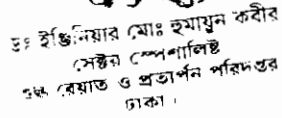 ইঞ্জিনিয়ার মোঃ হুমায়ুন কবীর
সেক্টর স্পেশালিষ্ট
রেয়াত ও প্রত্যর্পন পরিদপ্তর
ঢাকা।